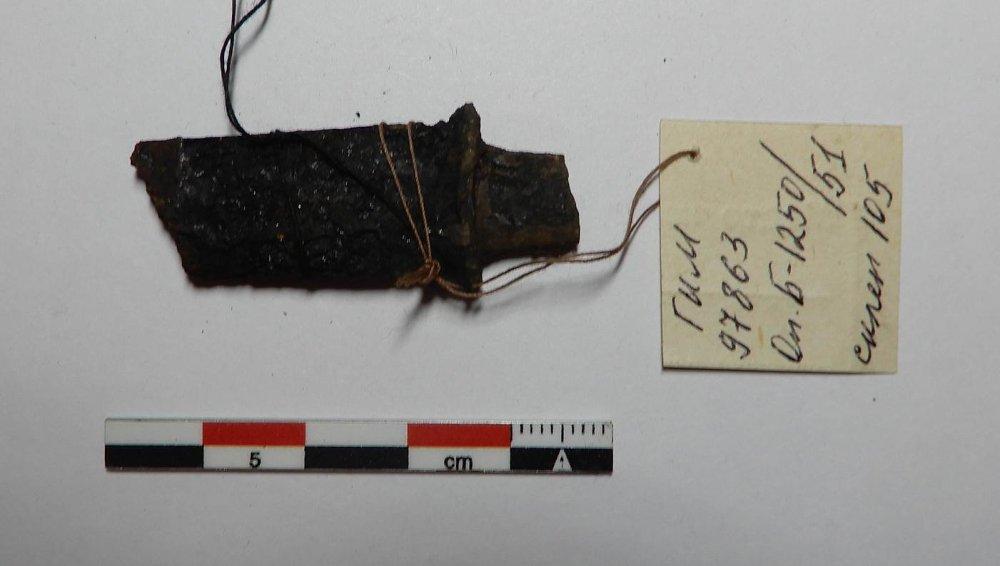 ГИМ
97863
Оп. Б-1250/
/51
склеп 105
5 cm